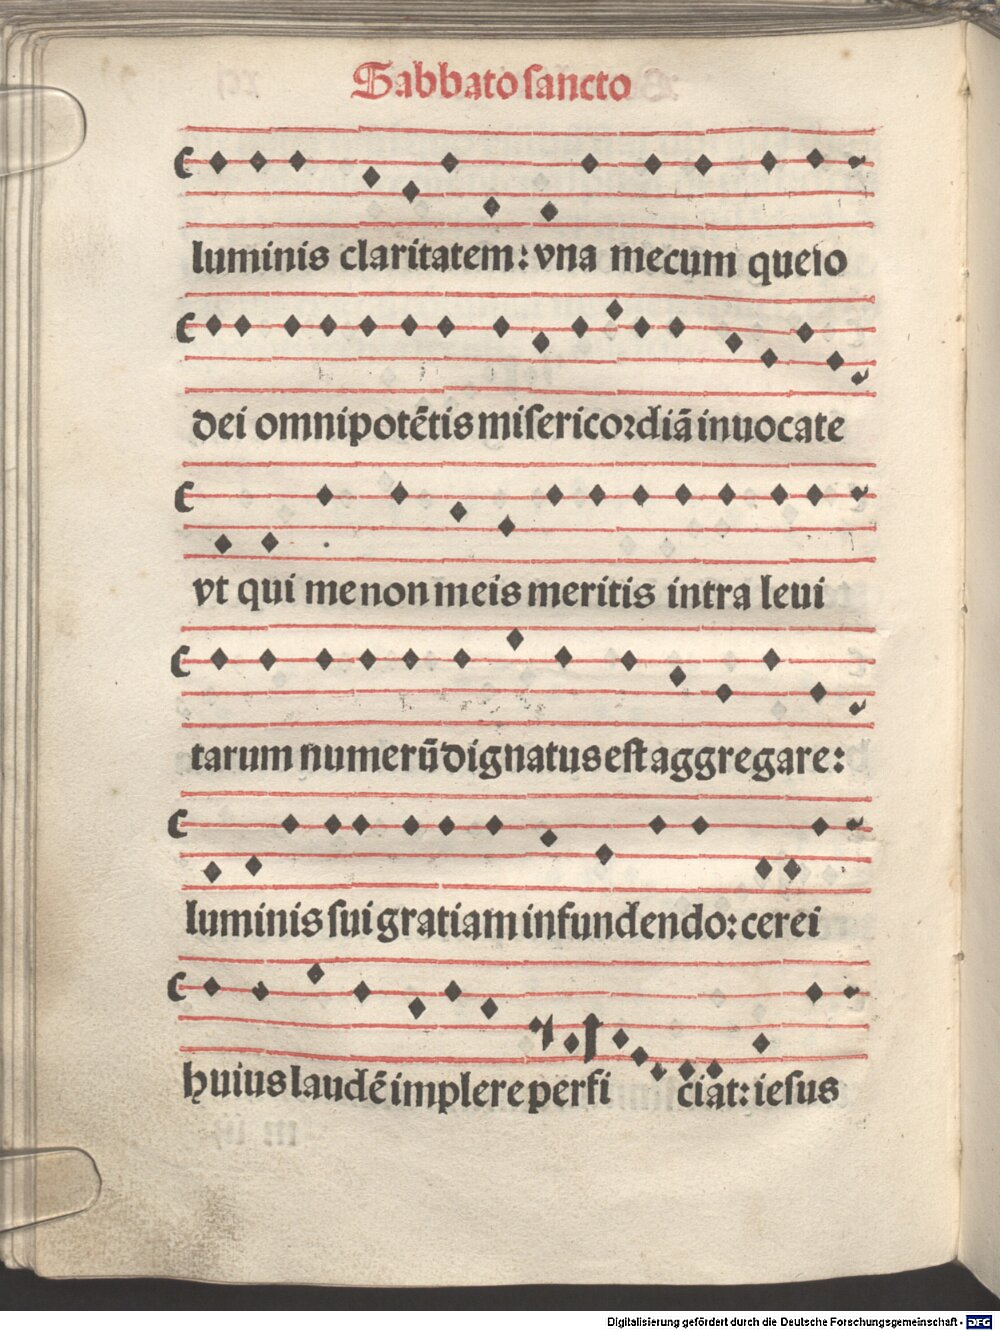 Sabbato sancto
luminis claritatem: vna mecum queſo
dei omnipotẽtis miſericoꝛdiã inuocate
vt qui me non meis meritis intra leui
tarum numerũ dignatus eſt aggregare:
luminis ſui gratiam infundendo: cerei
huius laudẽ implere perfi ciat: ieſus
Digitalisierung gefördert durch die Deutsche Forschungsgemeinschaft - DFG